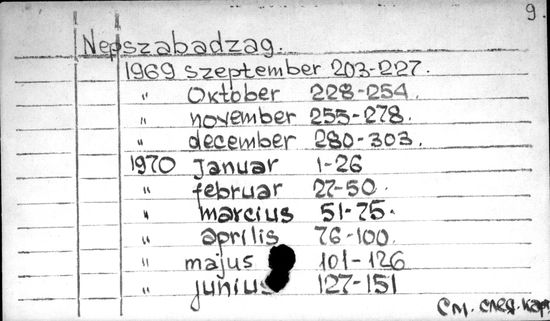 9.
Nepszabadzag.
1969 szeptember 203-227.
" Oktober 228-254.
" november 255-278.
" december 280-303.
1970 januar 1-26
" februar 27-50.
" marcius 51-75.
" aprilis 76-100.
" majus 101-126
" junius 127-151
См. след. карт